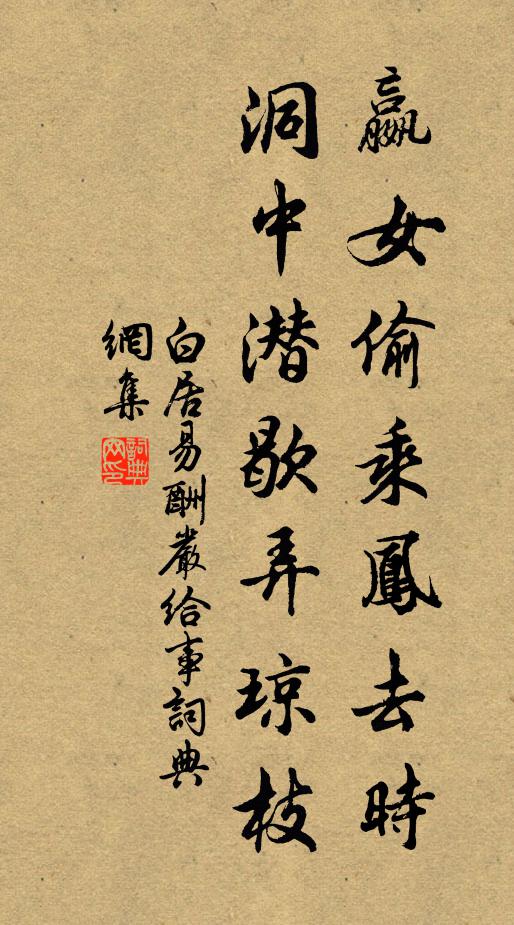 嬴女偷乘鳳去時
洞中潜歇弄琼枝
白居易酬嚴给事詞典
網集
詞典
网印